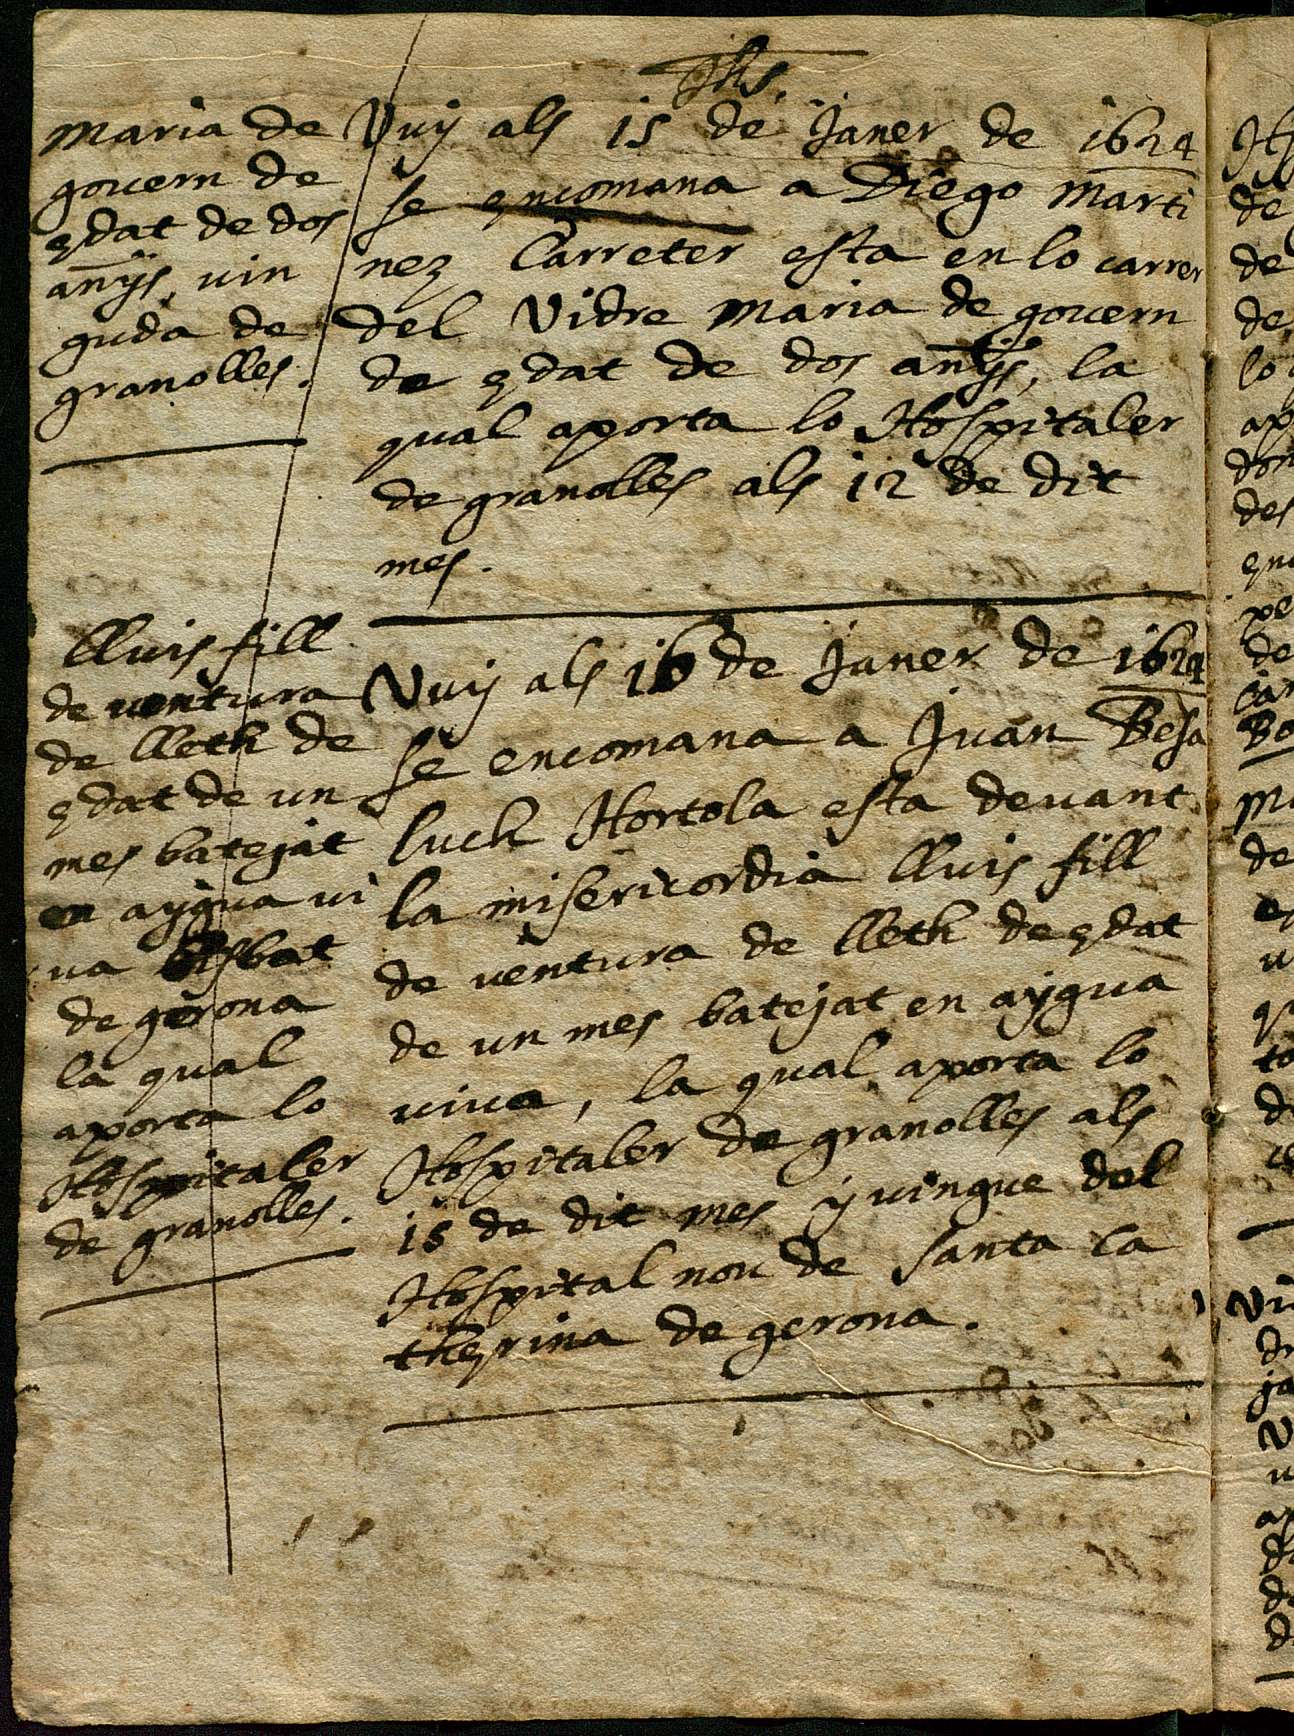 Jhs.
Maria de
govern de
edat de dos
anÿs, vin
guda de
granolles.
Vuÿ als 15 de Janer de 1624
se encomana a Diego Marti
nez Carreter esta en lo carrer
del Vidre Maria de govern
de edat de dos anÿs, la
qual aporta lo Hospitaler
de granolles als 12 de dit
mes.
lluis fill
de ventura
de lleth de
edat de un
mes batejat
en aÿgua vi
va bisbat
de gerona
la qual
aporta lo
Hospitaler
de granolles.
Vuÿ als 16 de Janer de 1624
se encomana a Juan Besa
luch Hortola esta devant
la misericordia lluis fill
de ventura de lleth de edat
de un mes batejat en aÿgua
viva, la qual aporta lo
Hospitaler de granolles als
15 de dit mes ÿ vingue del
Hospital nou de santa ca
therina de gerona.